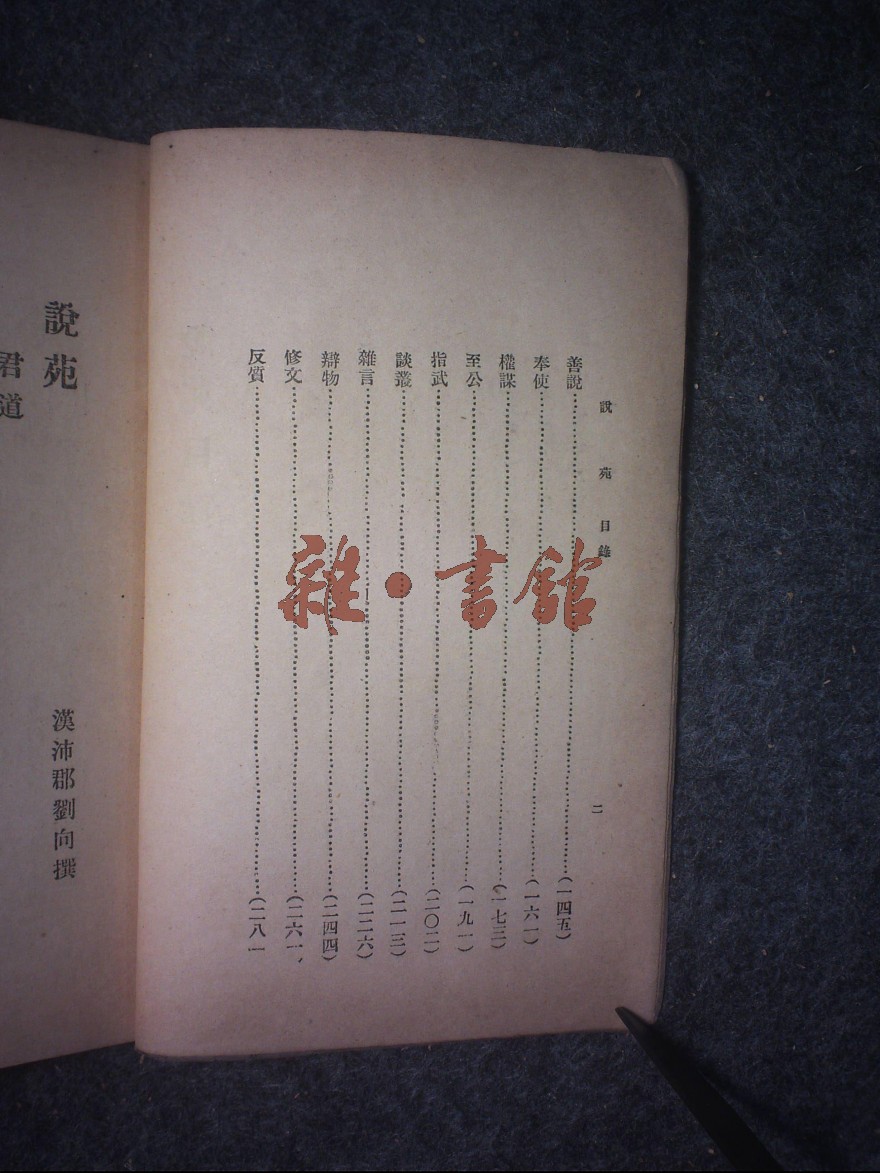 說苑目錄
二
善說……(一四五)
奉使……(一六一)
權謀……(一七三)
至公……(一九一)
指武……(二〇二)
談叢……(二一三)
雜言……(二二六)
辯物……(二四四)
修文……(二六一、
反質……(二八一
雜·書館
說苑
漢沛郡劉向撰
君道